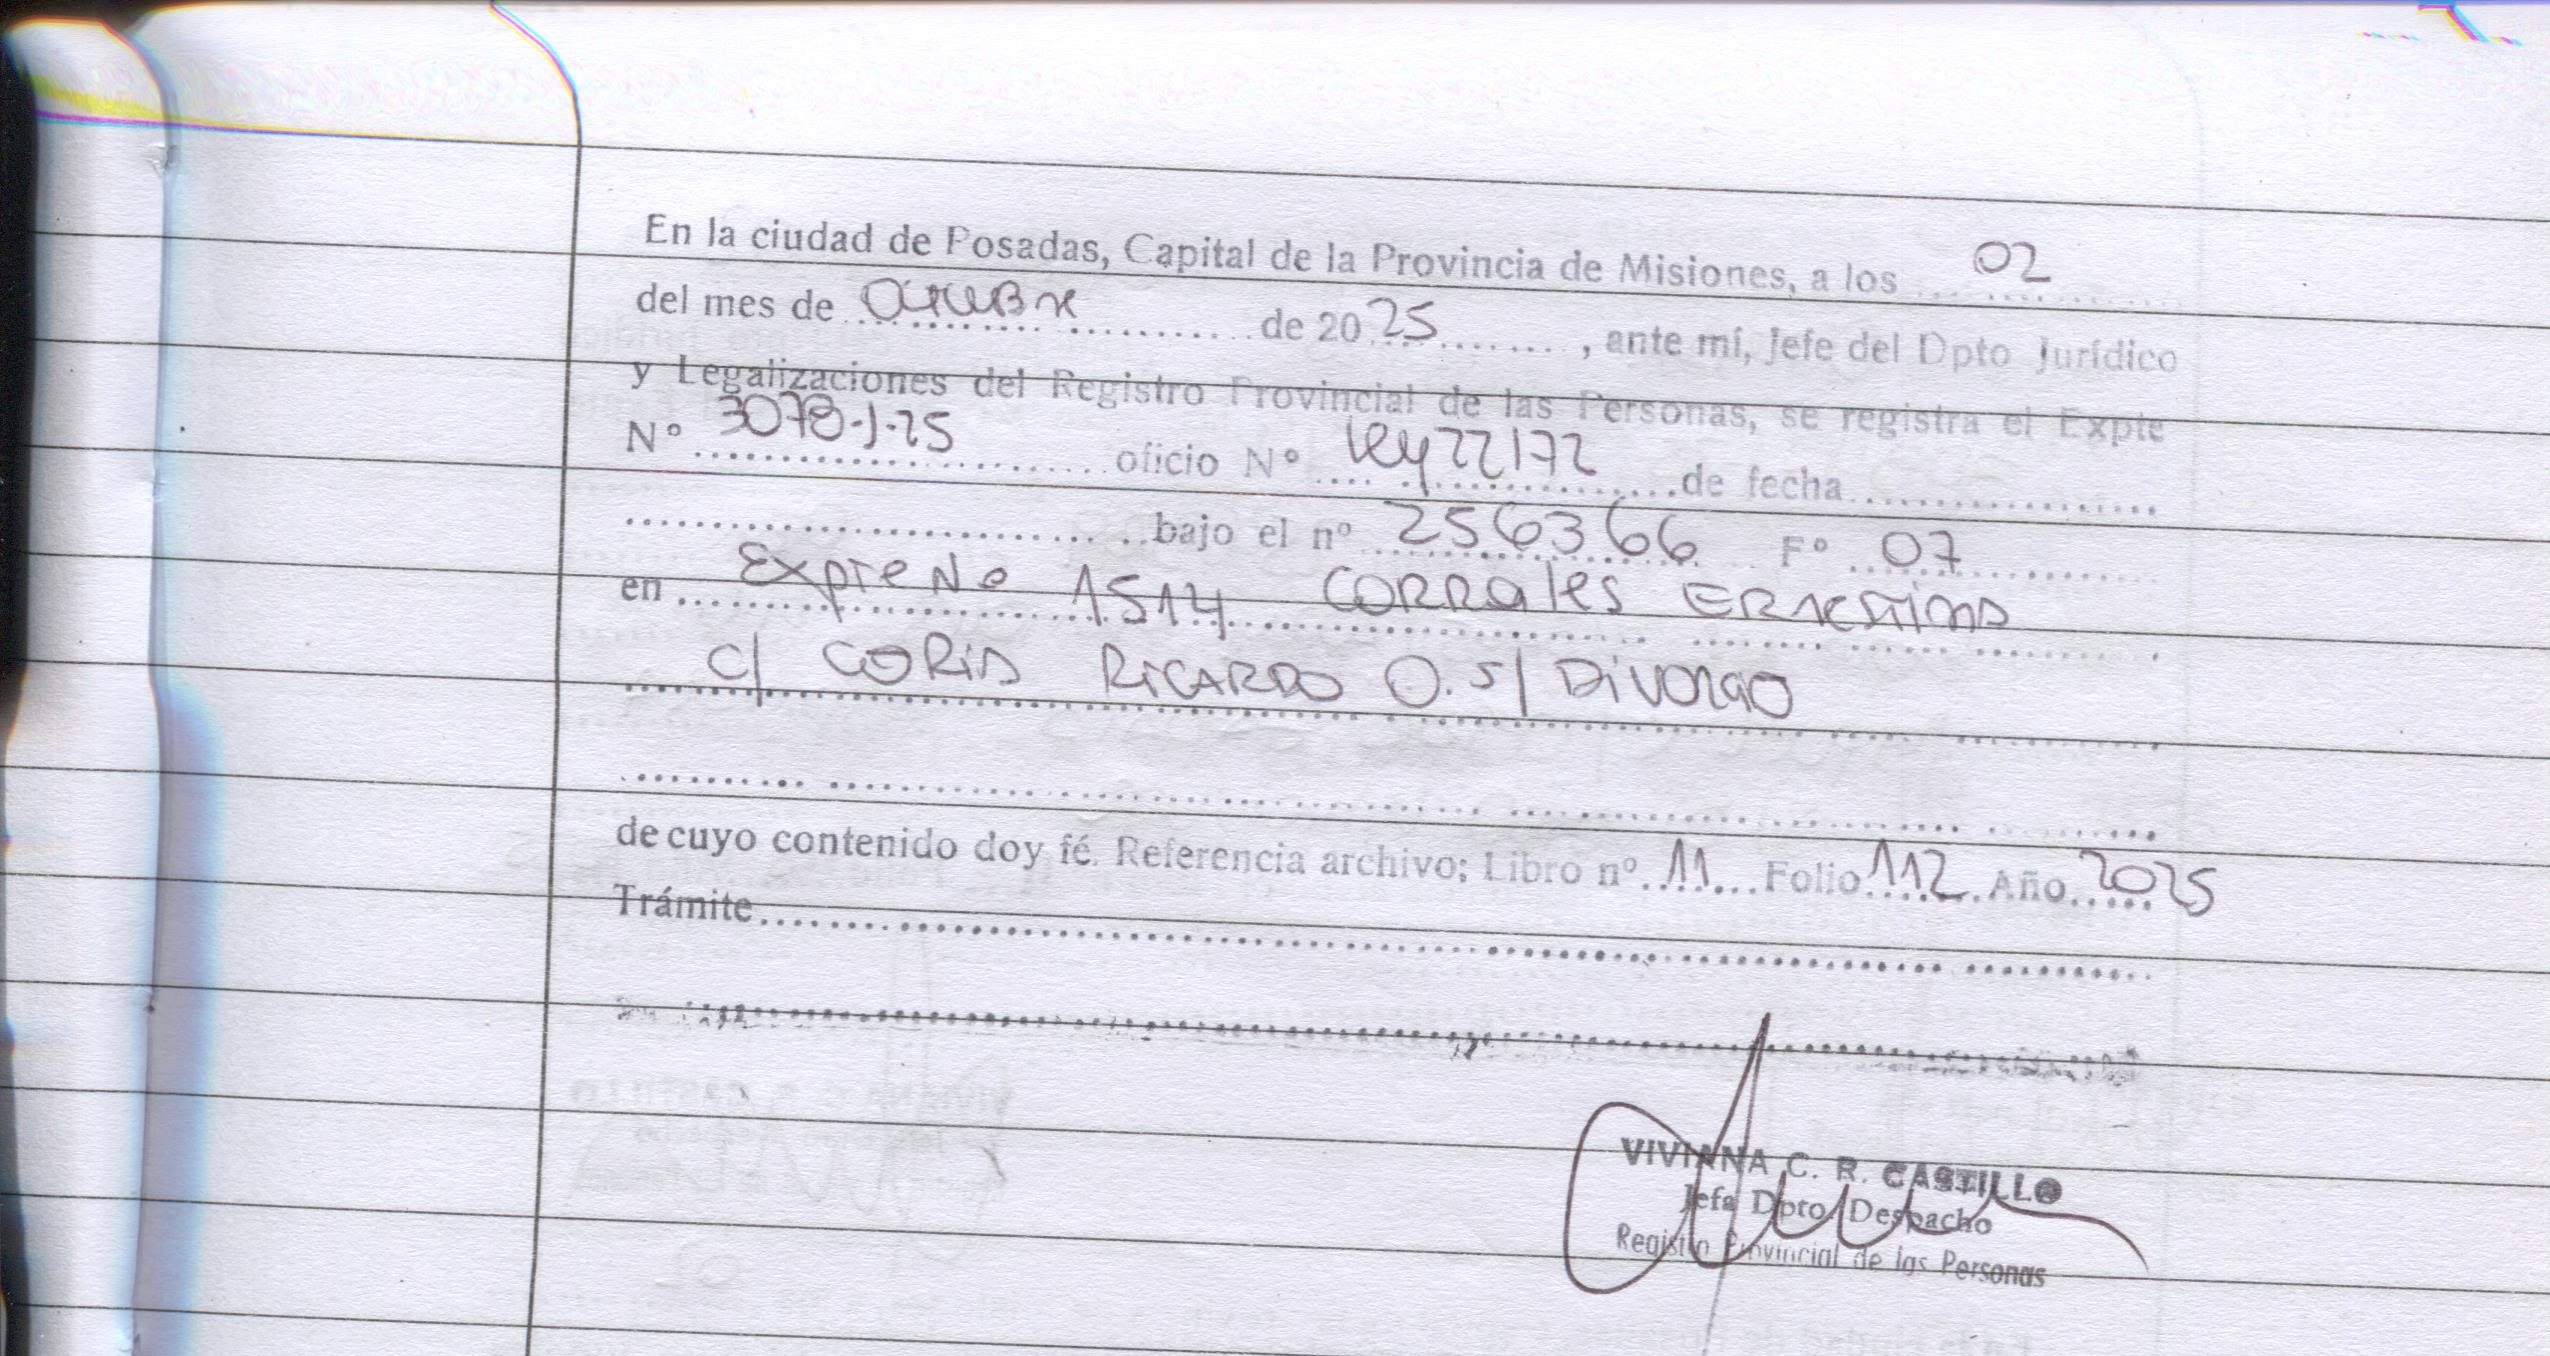 En la ciudad de Posadas, Capital de la Provincia de Misiones, a los 02
del mes de Octubre de 2025, ante mí, Jefe del Dpto Jurídico
y Legalizaciones del Registro Provincial de las Personas, se registra el Expte
Nº 3078-J-25 oficio Nº Ley 22172 de fecha
bajo el nº 256366 Fº 07
en Expte No 1514 CORRales ERNESTINA
c/ CORIA RICARDO O. s/ DIVORCIO
de cuyo contenido doy fé. Referencia archivo; Libro nº 11 Folio 112 Año 2025
Trámite
VIVIANA C. R. CASTILLO
Jefa Dpto. Despacho
Registro Provincial de las Personas